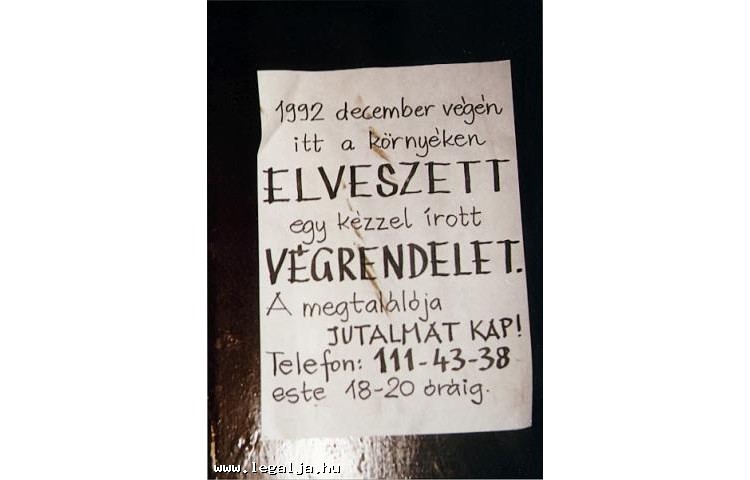 1992 december végén
itt a környéken
ELVESZETT
egy kézzel írott
VÉGRENDELET.
A megtalálója
JUTALMAT KAP!
Telefon: 111-43-38
este 18-20 óráig.
www.legalja.hu